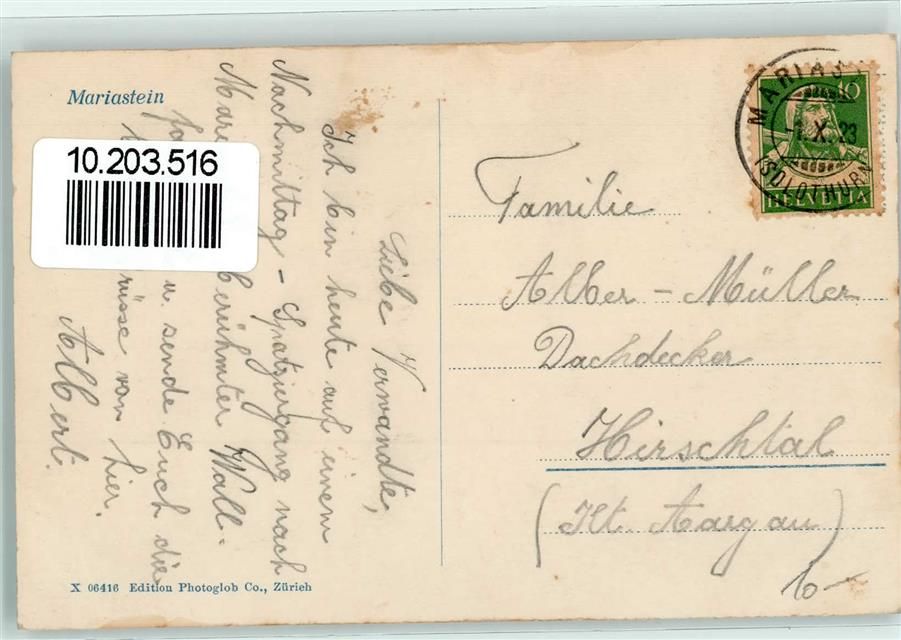 Mariastein
10.203.516
Liebe Verwandte,
Ich bin heute auf einem
Nachmittag - Spatziergang nach
berühmter Wall-
u. sende Euch die
von hier.
Albert.
X 06416 Edition Photoglob Co., Zürich
MARIAS
X. 23
(SOLOTHURN
10
HELVETIA
Familie
Alber - Müller
Dachdecker
Hirschtal
(Kt. Aargau)
6-